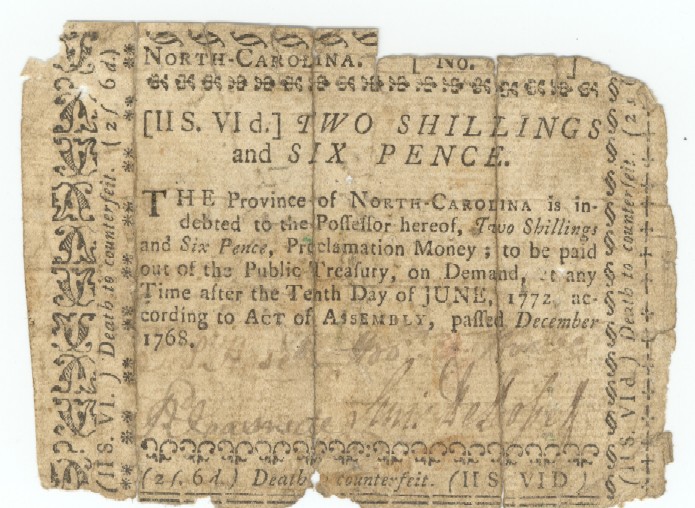 NORTH-CAROLINA. [ No. ]
[IIS. VId.] TWO SHILLINGS
and SIX PENCE.
THE Province of NORTH-CAROLINA is in-
debted to the Poſſeſſor hereof, Two Shillings
and Six Pence, Proclamation Money; to be paid
out of the Public Treaſury, on Demand, at any
Time after the Tenth Day of JUNE, 1772, ac-
cording to ACT of ASSEMBLY, paſſed December
1768.
(2ſ. 6d.) Death to counterfeit. (IIS. VID)
(IIS. VI.) Death to counterfeit. (2ſ 6d)
(IIS. VId.) Death to counterfeit. (2ſ